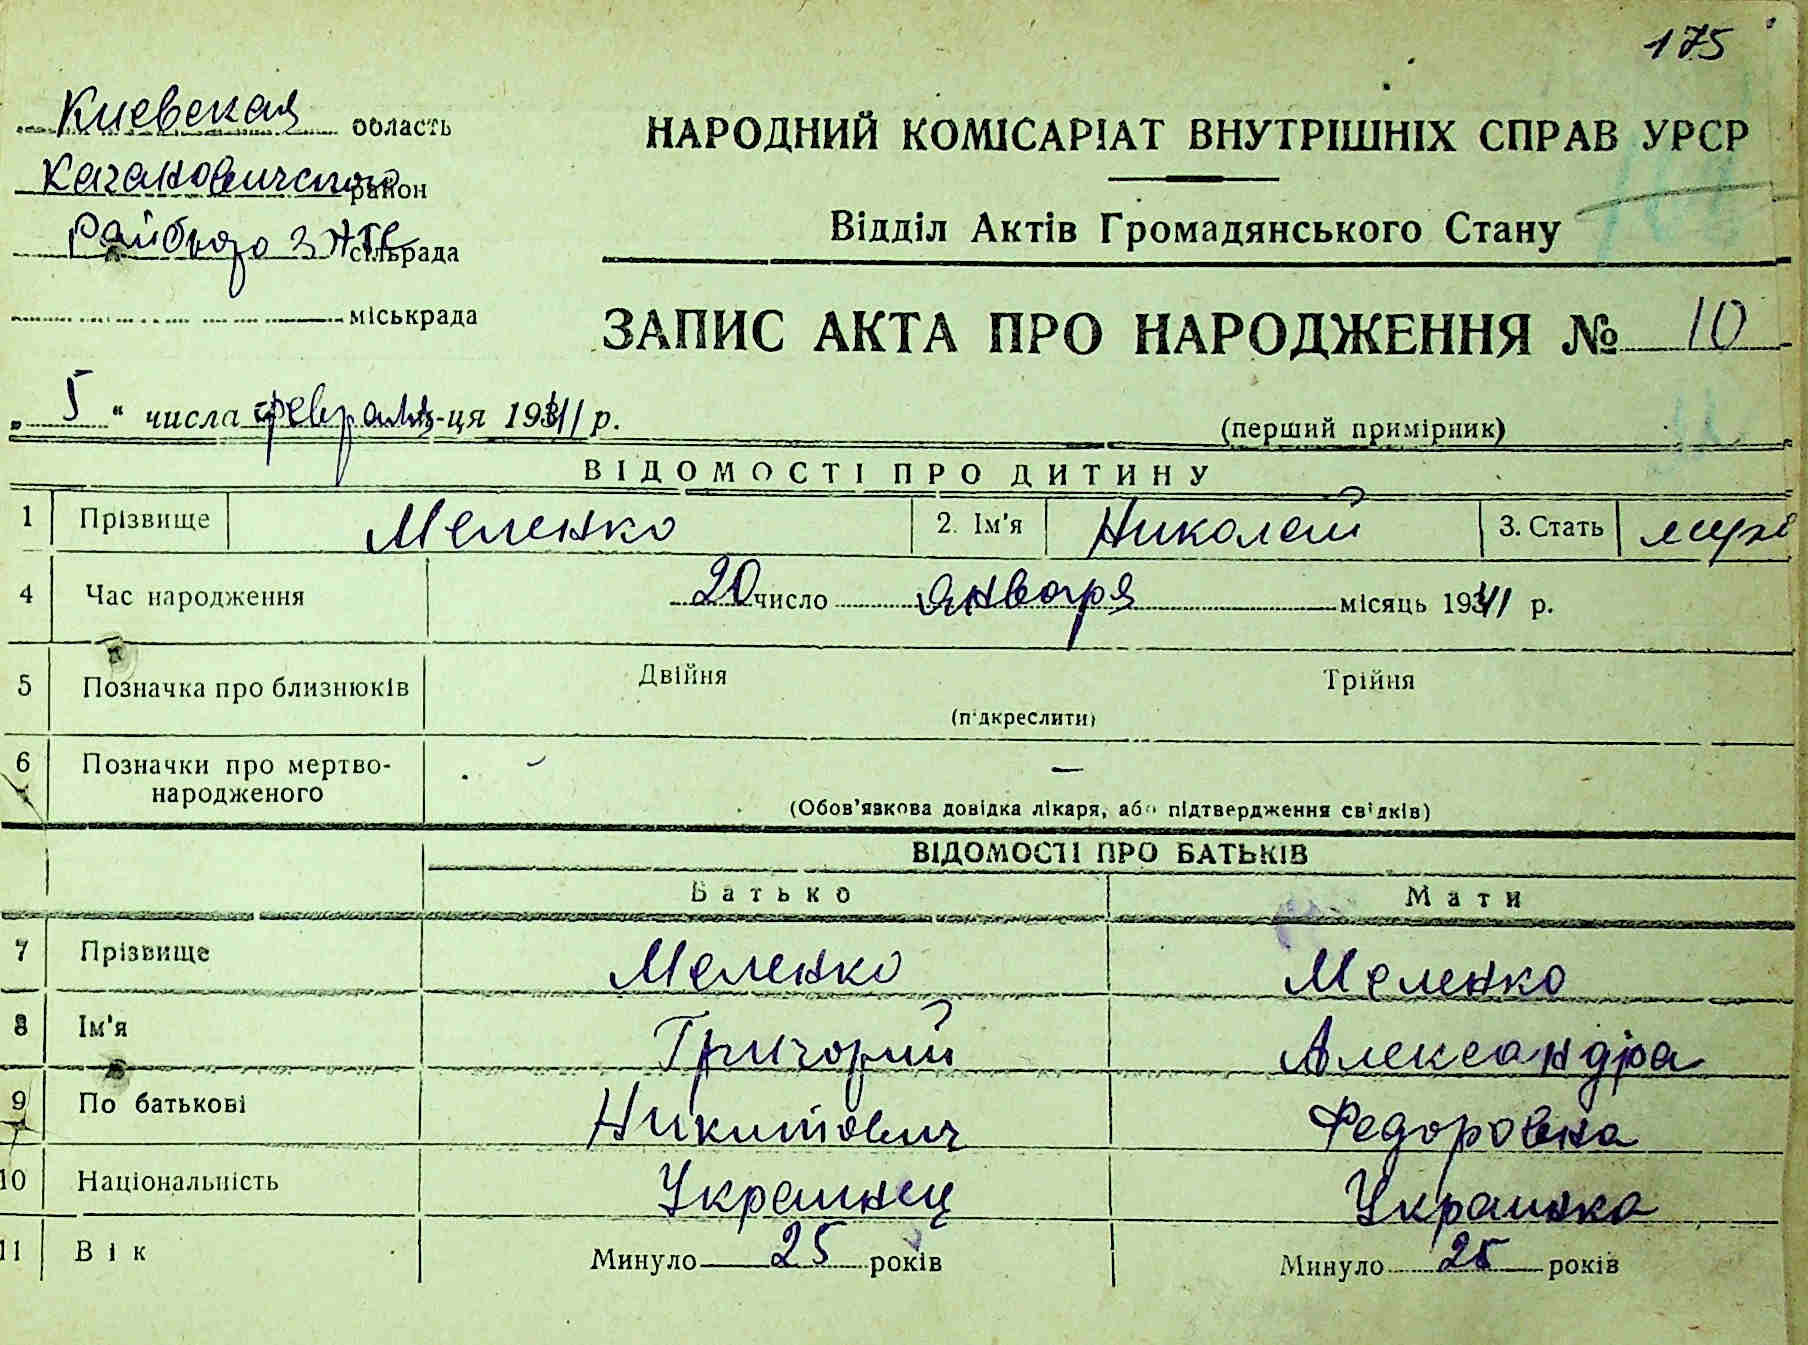 175
Киевская область
Кагановичского район
Райбюро ЗАГС сільрада
міськрада
НАРОДНИЙ КОМІСАРІАТ ВНУТРІШНІХ СПРАВ УРСР
Відділ Актів Громадянського Стану
ЗАПИС АКТА ПРО НАРОДЖЕННЯ № 10
„5“ числа февраля-ця 1941 р.
(перший примірник)
ВІДОМОСТІ ПРО ДИТИНУ
1 Прізвище Меленко 2. Ім'я Николай 3. Стать муж
4 Час народження 20 число января місяць 1941 р.
5 Позначка про близнюків Двійня Трійня
(підкреслити)
6 Позначки про мертво-
народженого —
(Обов'язкова довідка лікаря, або підтвердження свідків)
ВІДОМОСТІ ПРО БАТЬКІВ
Батько Мати
7 Прізвище Меленко Меленко
8 Ім'я Григорий Александра
9 По батькові Никитович Федоровна
10 Національність Украинец Украинка
11 Вік Минуло 25 років Минуло 25 років